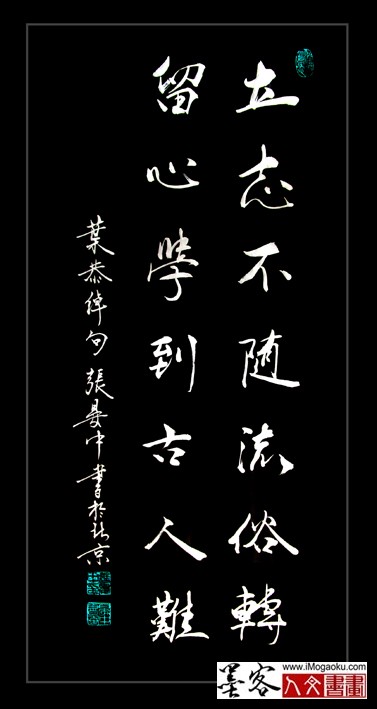 立志不随流俗轉
留心學到古人難
葉恭綽句 張晏中書於北京
www.iMogaoku.com
墨客
人文書畫